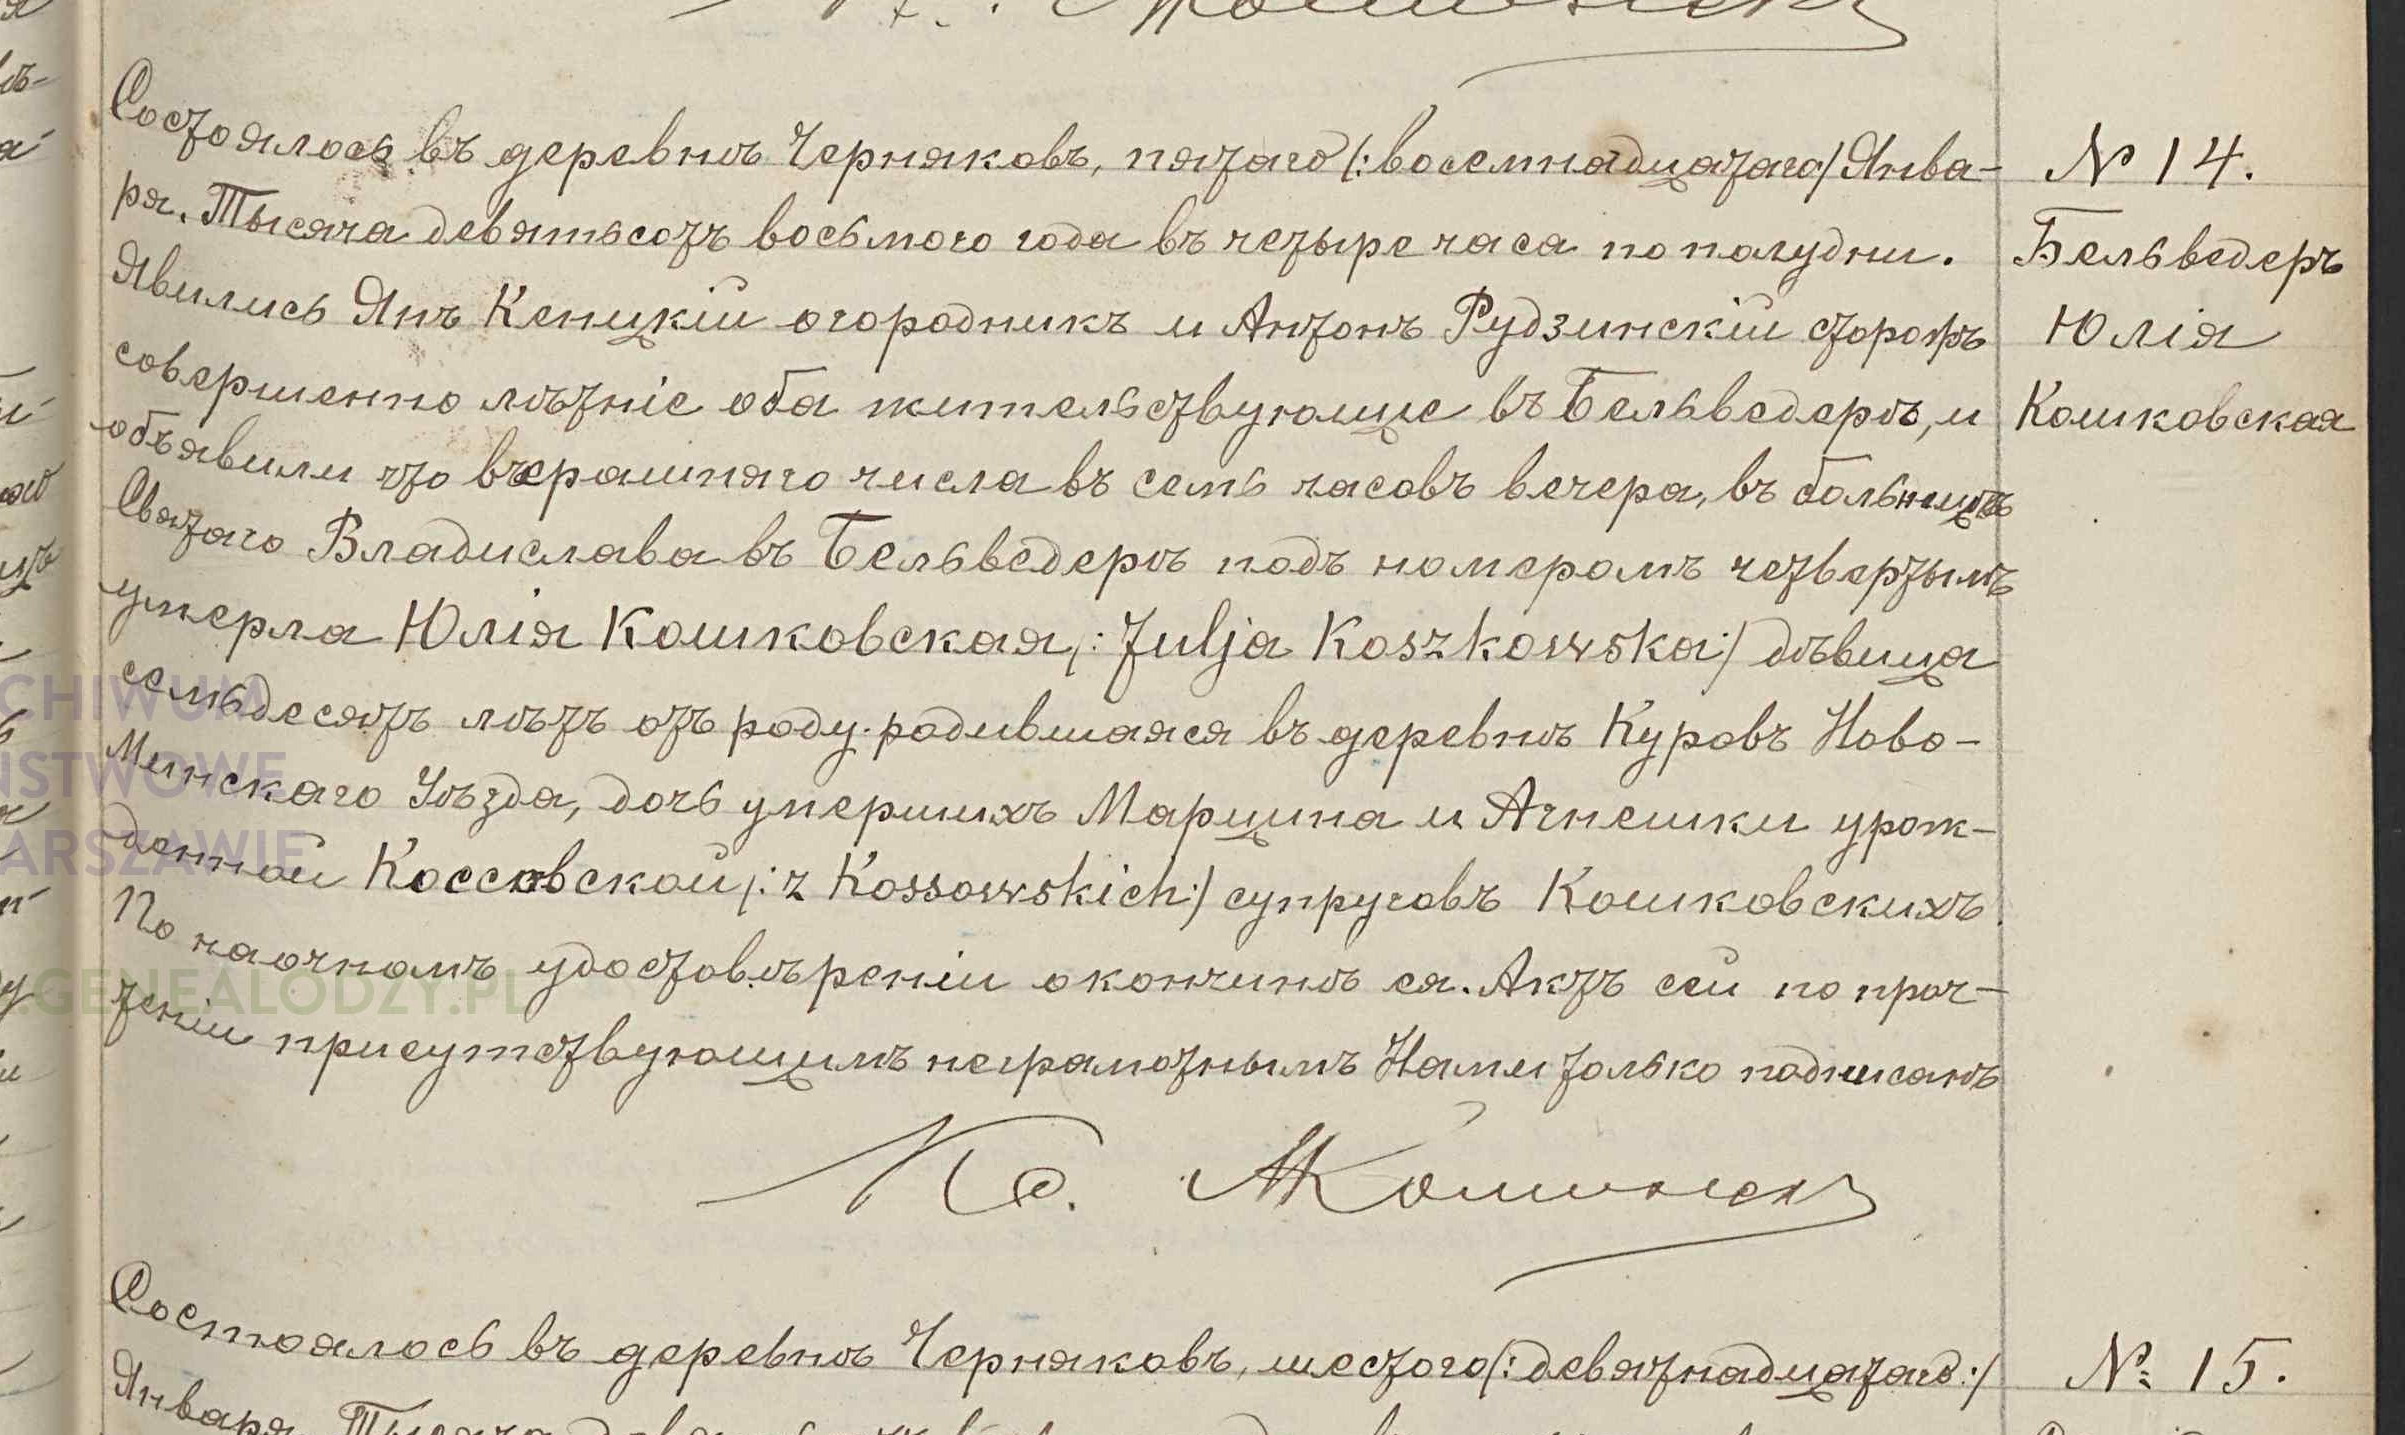 Состоялось въ деревнѣ Черняковъ, пятаго /:восемнадцатаго/ Янва-
ря. Тысяча девятьсотъ восьмого года въ четыре часа пополудни.
Явились Янъ Кеницкій огородникъ и Антонъ Рудзинскій сторожъ
совершенно лѣтніе оба жительствующие въ Бельведерѣ, и
объявили что вчерашняго числа въ семь часовъ вечера, въ больницѣ
Святаго Владислава въ Бельведерѣ подъ номеромъ четвертымъ
умерла Юлія Кошковская /:Julja Koszkowska:/ дѣвица
семьдесятъ лѣтъ отъ роду. родившаяся въ деревнѣ Куровъ Ново-
Минскаго Уѣзда, дочь умершихъ Марцина и Агнешки урож-
данной Коссовской /:z Kossowskich:/ супруговъ Кошковскихъ.
По наочномъ удостовѣреніи о кончинѣ ея. Актъ сей по проч-
теніи присутствующимъ неграмотнымъ Нами только подписанъ
№ 14.
Бельведеръ
Юлія
Кошковская
Состоялось въ деревнѣ Черняковъ, шестого /:девятнадцатаго:/
Января. Тысяча
№ 15.
ARCHIWUM
PAŃSTWOWE
WARSZAWIE
.GENEALODZY.PL